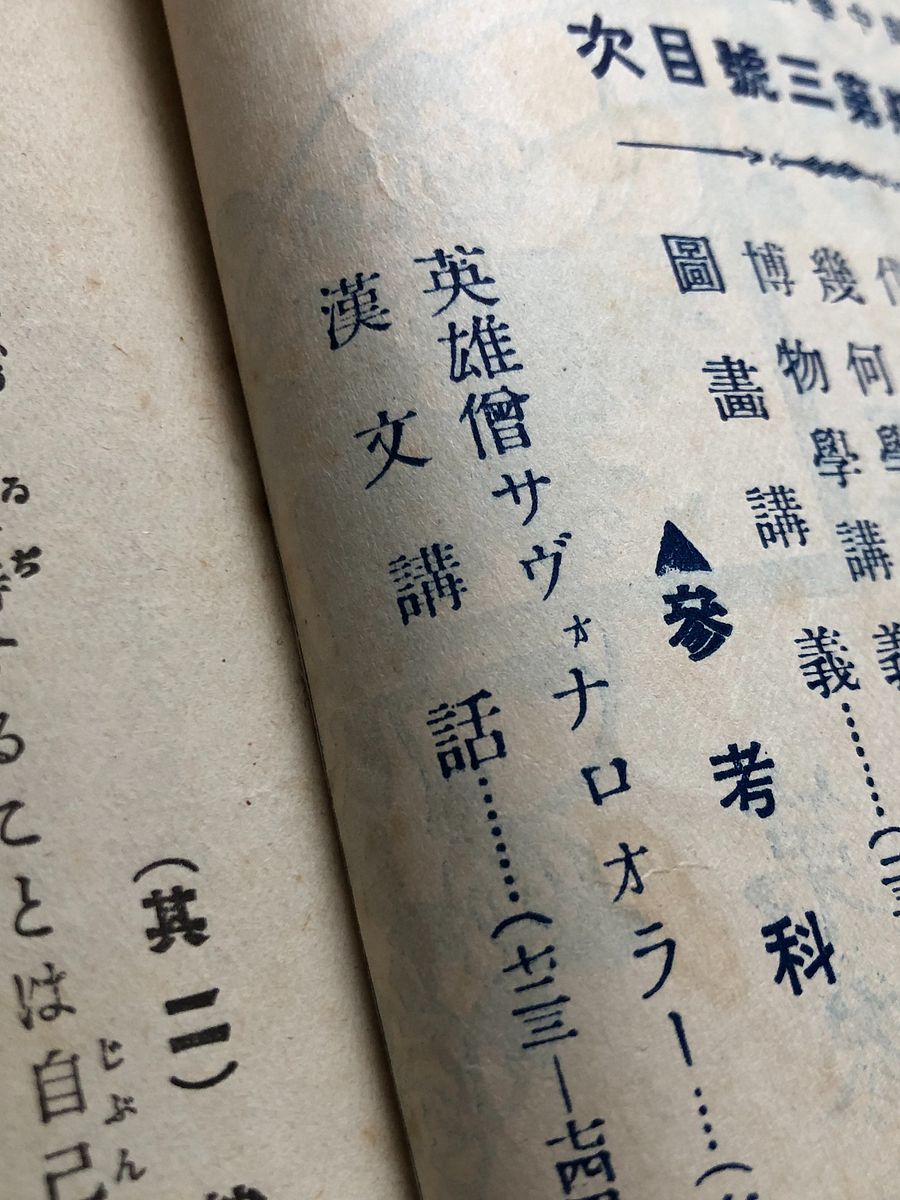 第三號目次
幾何學
博物學講義……
圖畫講
▲參考科
英雄僧サヴォナロォラー……(
漢文講話………(七二三―七四
(其二)
ることは自己
じぶん